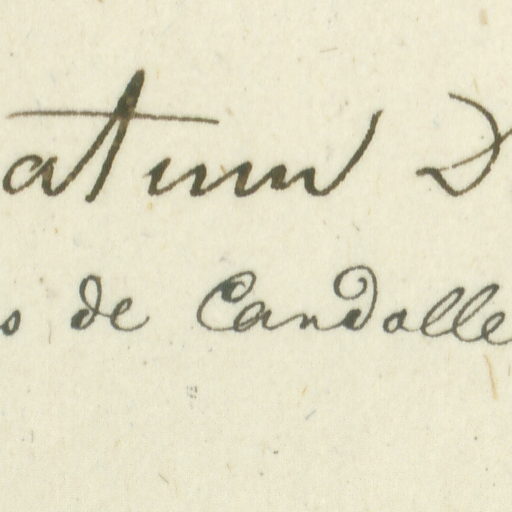 atum D
s de Candolle